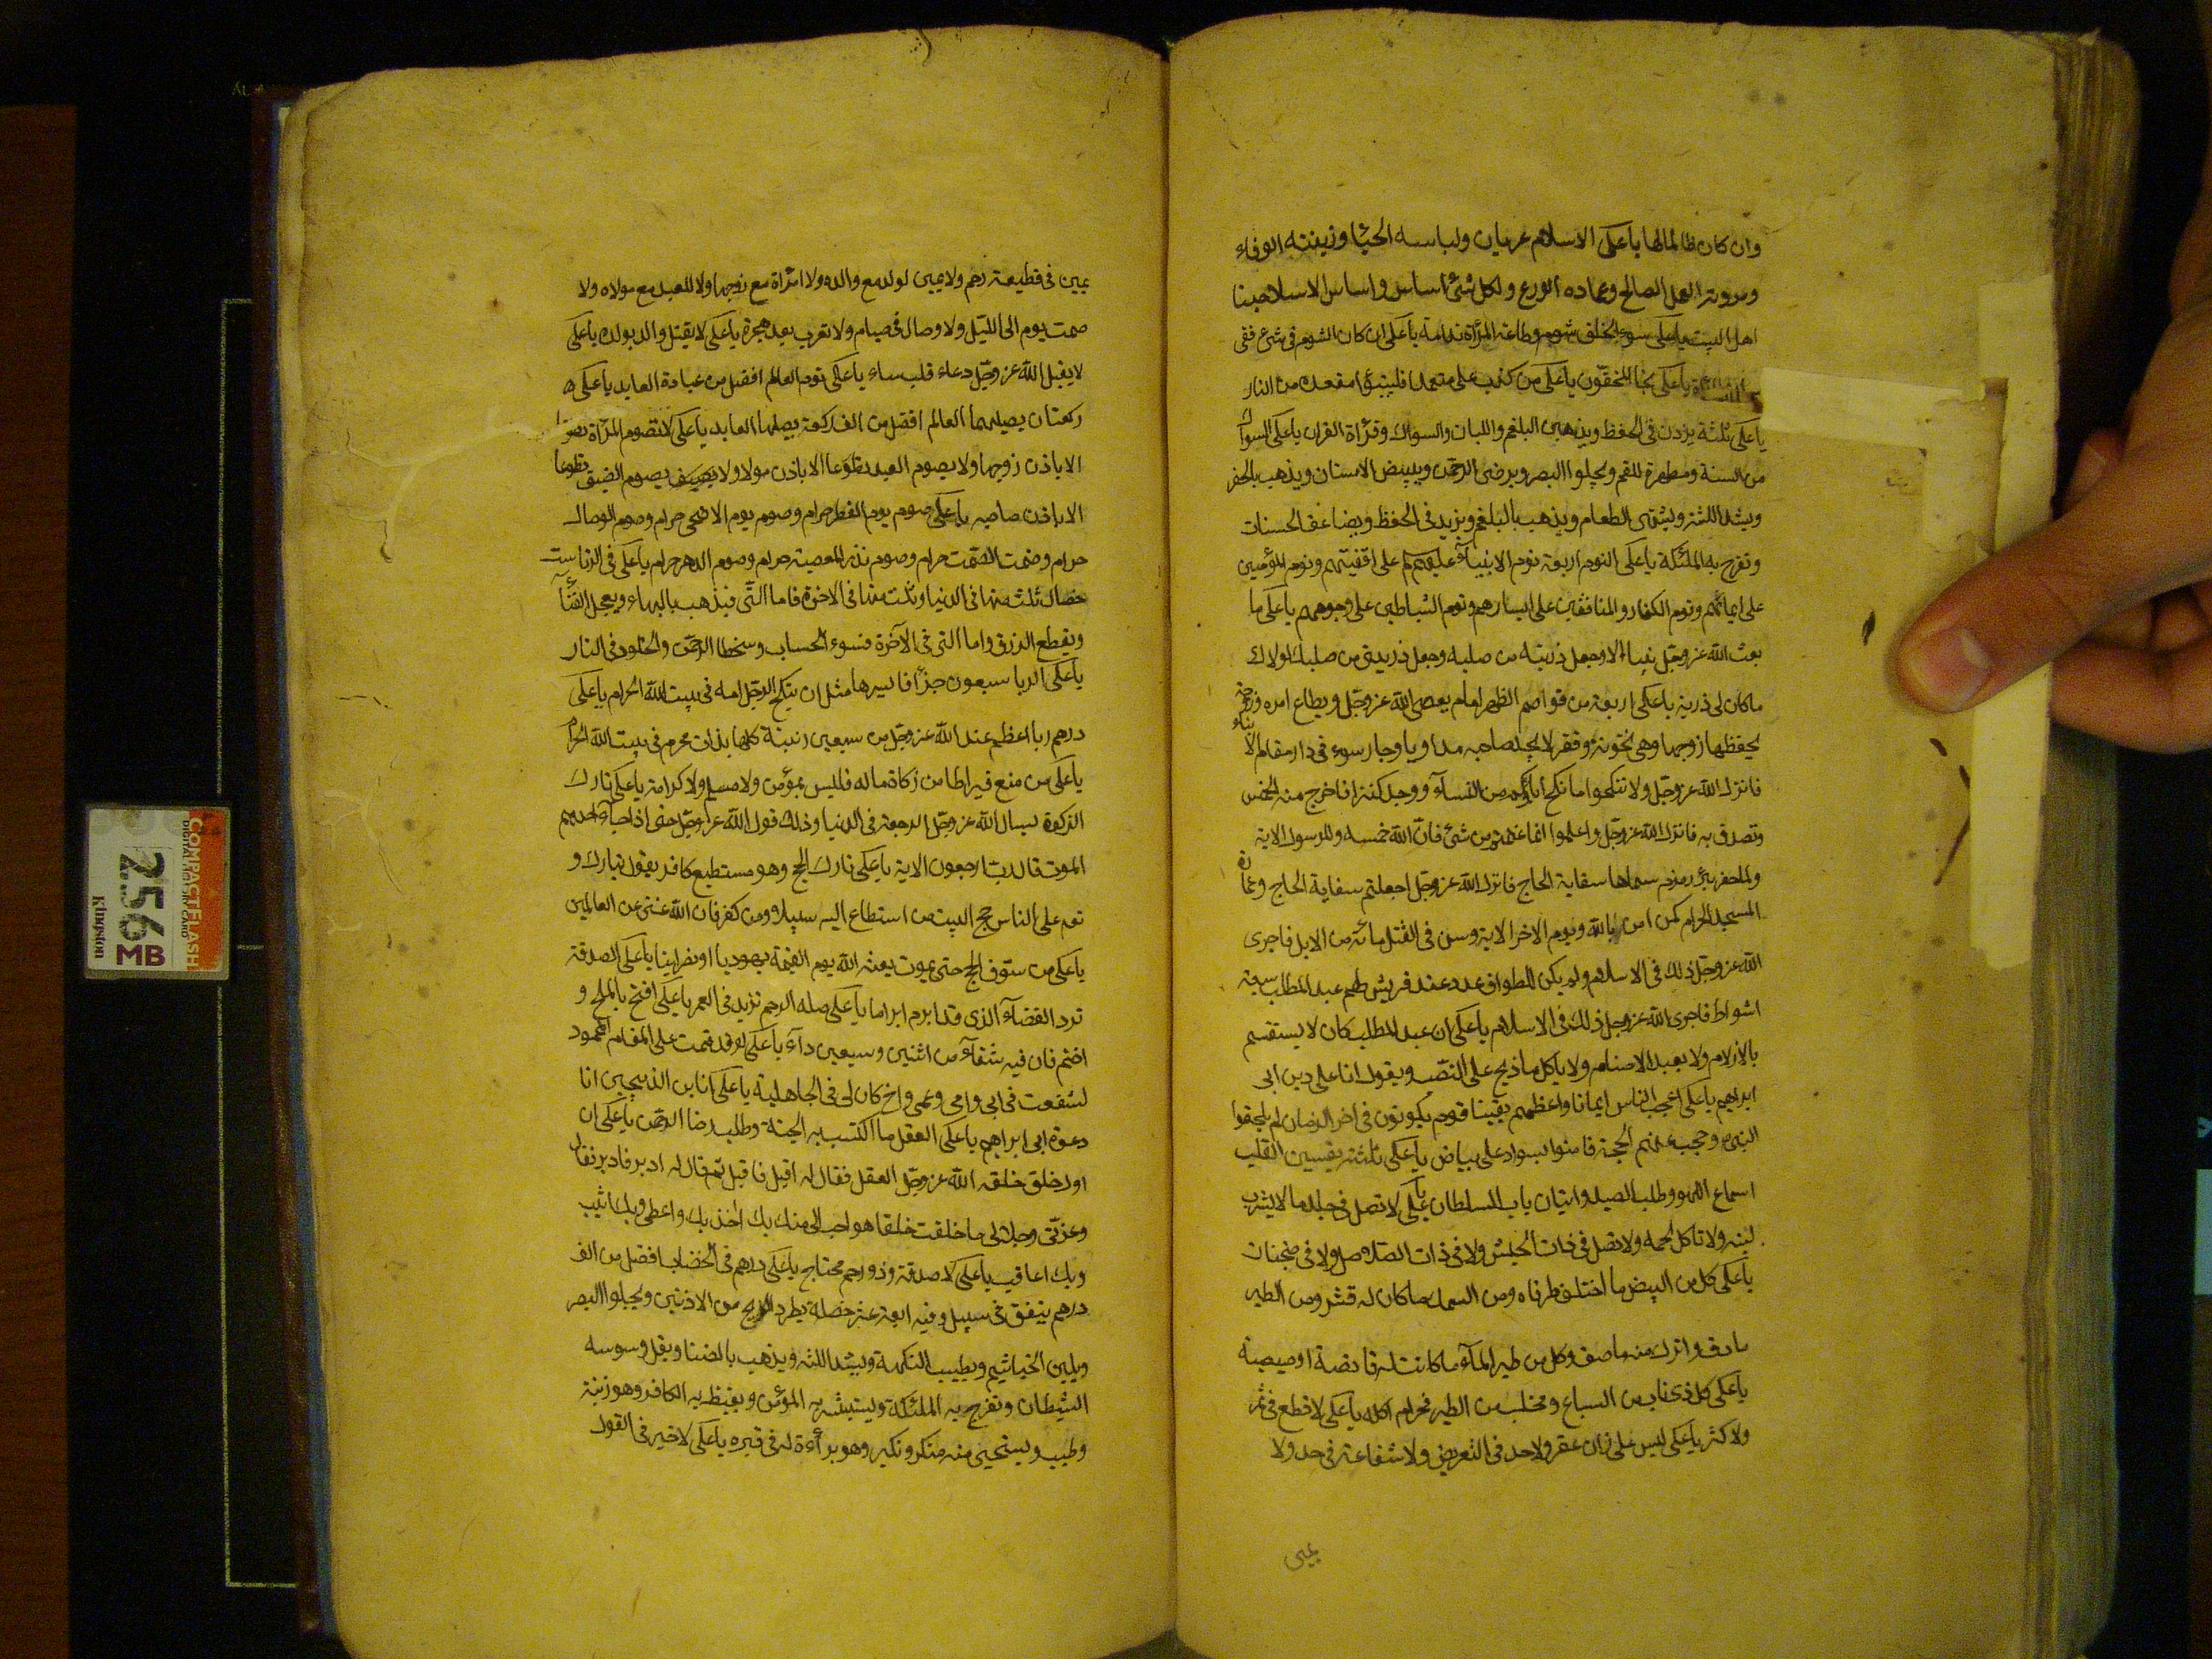 وان كان ظالما لها يا على الاسلام عريان ولباسه الحياء وزينته الوفاء
ومروته العمل الصالح وعماده الورع ولكل شئ اساس واساس الاسلام حبنا
اهل البيت يا على سوء الخلق شوم وطاعة المرأة ندامة يا على ان كان الشوم فى شئ ففى
يا على نجا المخفّون يا على من كذب على متعمدا فليتبوّا مقعده من النار
يا على ثلثة يزدن فى الحفظ ويذهبن البلغم واللبان والسواك وقرأة القران يا على السواك
من السنة ومطهرة للفم ويجلوا البصر ويرضى الرحمن ويبيض الاسنان ويذهب بالحفر
ويشد اللثة ويشهى الطعام ويذهب بالبلغم ويزيد فى الحفظ ويضاعف الحسنات
وتفرح به الملئكة يا على النوم اربعة نوم الانبياء عليهم على اقفيتهم ونوم المؤمنين
على ايمانهم ونوم الكفار والمنافقين على ايسارهم ونوم الشياطين على وجوههم يا على ما
بعث الله عز وجل نبيا الا وجعل ذريته من صلبه وجعل ذريتى من صلبك لولاك
ماكان لى ذرية يا على اربعة من قواصم الظهر امام يعصى الله عز وجل ويطاع امره وزوجة
يحفظها زوجها وهى تخونه وفقر لا يجد صاحبه مداويا وجار سوء فى دار مقام
فانزل الله عز وجل ولا تنكحوا ما نكح آباؤكم من النسآء ووجد كنزا فاخرج منه الخمس
وتصدق به فانزل الله عز وجل واعلموا انما غنمتم من شئ فان الله خمسه وللرسول الاية
ولما حفر بئر زمزم سماها سقاية الحاج فانزل الله عز وجل اجعلتم سقاية الحاج وعمارة
المسجد الحرام كمن امن بالله ويوم الاخر الاية وسن فى القتل مائة من الابل فاجرى
الله عز وجل ذلك فى الاسلام ولم يكن للطواف عدد عند قريش عبد المطلب سبعة
اشواط فاجرى الله عز وجل ذلك فى الاسلام يا على ان عبد المطلب كان لا يستقسم
بالازلام ولا يعبد الاصنام ولا ياكل ما ذبح على النصب ويقول انا على دين ابى
ابراهيم يا على اعجب الناس ايمانا واعظمهم يقينا قوم يكونون فى اخر الزمان لم يلحقوا
النبى وحجب عنهم الحجة فامنوا بسواد على بياض يا على ثلثة يقسين القلب
اسماع اللهو وطلب الصيد واتيان باب السلطان يا على لا تصل فى جلد ما لا يشرب
لبنه ولا تاكل لحمه ولا تصل فى ذات الجيش ولا فى ذات الصلاصل ولا فى ضجنان
يا على كل من البيض ما اختلف طرفاه ومن السمك ماكان له قشر ومن الطير
مادف واترك منه ماصف وكل من طير المآء ما كانت له قانصة او صيصية
يا على كل ذى ناب من السباع ومخلب من الطير فحرام اكله يا على لا قطع فى ثمر
ولا كثر يا على ليس على زان عقر ولا حد فى التعريض ولا شفاعة فى حد ولا
يمين
يمين فى قطيعة رحم ولا يمين لولد مع والده ولا امرأة مع زوجها ولا للعبد مع مولاه ولا
صمت يوم الى الليل ولا وصال فى صيام ولا تعرب بعد هجرة يا على لا يقتل والد بولده يا على
لا يقبل الله عز وجل دعاء قلب ساء يا على نوم العالم افضل من عبادة العابد يا على
ركعتان يصليهما العالم افضل من الف ركعة يصليها العابد يا على لا تصوم المرأة تطوعا
الا باذن زوجها ولا يصوم العبد تطوعا الا باذن مولاه ولا يصوم الضيف تطوعا
الا باذن صاحبه يا على صوم يوم الفطر حرام وصوم يوم الاضحى حرام وصوم الوصال
حرام وصمت الصمت حرام وصوم نذر المعصية حرام وصوم الدهر حرام يا على فى الزنا ست
خصال ثلثة منها فى الدنيا وثلث منها فى الاخرة فاما التى فيذهب بالبهاء ويعجل الفناء
ويقطع الرزق واما التى فى الآخرة فسوء الحساب وسخط الرحمن والخلود فى النار
يا على الربا سبعون جزأ فايسرها مثل ان ينكح الرجل امه فى بيت الله الحرام يا على
درهم ربا اعظم عند الله عز وجل من سبعين زنية كلها بذات محرم فى بيت الله الحرام
يا على من منع قيراطا من زكاة ماله فليس بمؤمن ولا مسلم ولا كرامة يا على تارك
الزكوة يسال الله عز وجل الرجعة فى الدنيا وذلك قول الله عز وجل حتى اذا جاء احدهم
الموت قال رب ارجعون الاية يا على تارك الحج وهو مستطيع كافر يقول تبارك و
تعم على الناس حج البيت من استطاع اليه سبيلا ومن كفر فان الله غنى عن العالمين
يا على من سوّف الحج حتى يموت بعثه الله يوم القيمة يهوديا او نصرانيا يا على الصدقة
ترد القضآء الذى قد ابرم ابراما يا على صلة الرحم تزيد فى العمر يا على افتح بالملح و
اختم فان فيه شفآء من اثنين وسبعين دآء يا على لو قد قمت على المقام المحمود
لشفعت فى ابى وامى وعمى واخ كان لى فى الجاهلية يا على انا بن الذبيحين انا
دعوة ابى ابراهيم يا على العقل ما اكتسب به الجنة وطلب رضا الرحمن يا على ان
اول خلق خلقه الله عز وجل العقل فقال له اقبل فاقبل ثم قال له ادبر فادبر فقال
وعزتى وجلالى ما خلقت خلقا هو احب الى منك بك اخذ بك واعطى وبك اثيب
وبك اعاقب يا على لا صدقة وذو رحم محتاج يا على درهم فى الخضاب افضل من الف
درهم ينفق فى سبيل وفيه اربعة عشر خصلة يطرد الريح من الاذنين ويجلوا البصر
ويلين الخياشيم ويطيب النكهة ويشد اللثة ويذهب بالضنا ويقل وسوسه
الشيطان وتفرح به الملئكة ويستبشر به المؤمن ويغيظ به الكافر وهو زينة
وطيب ويستحيى منه منكر ونكير وهو برآءة له فى قبره يا على لا خير فى القول
COMPACTFLASH
256
MB
Kingston